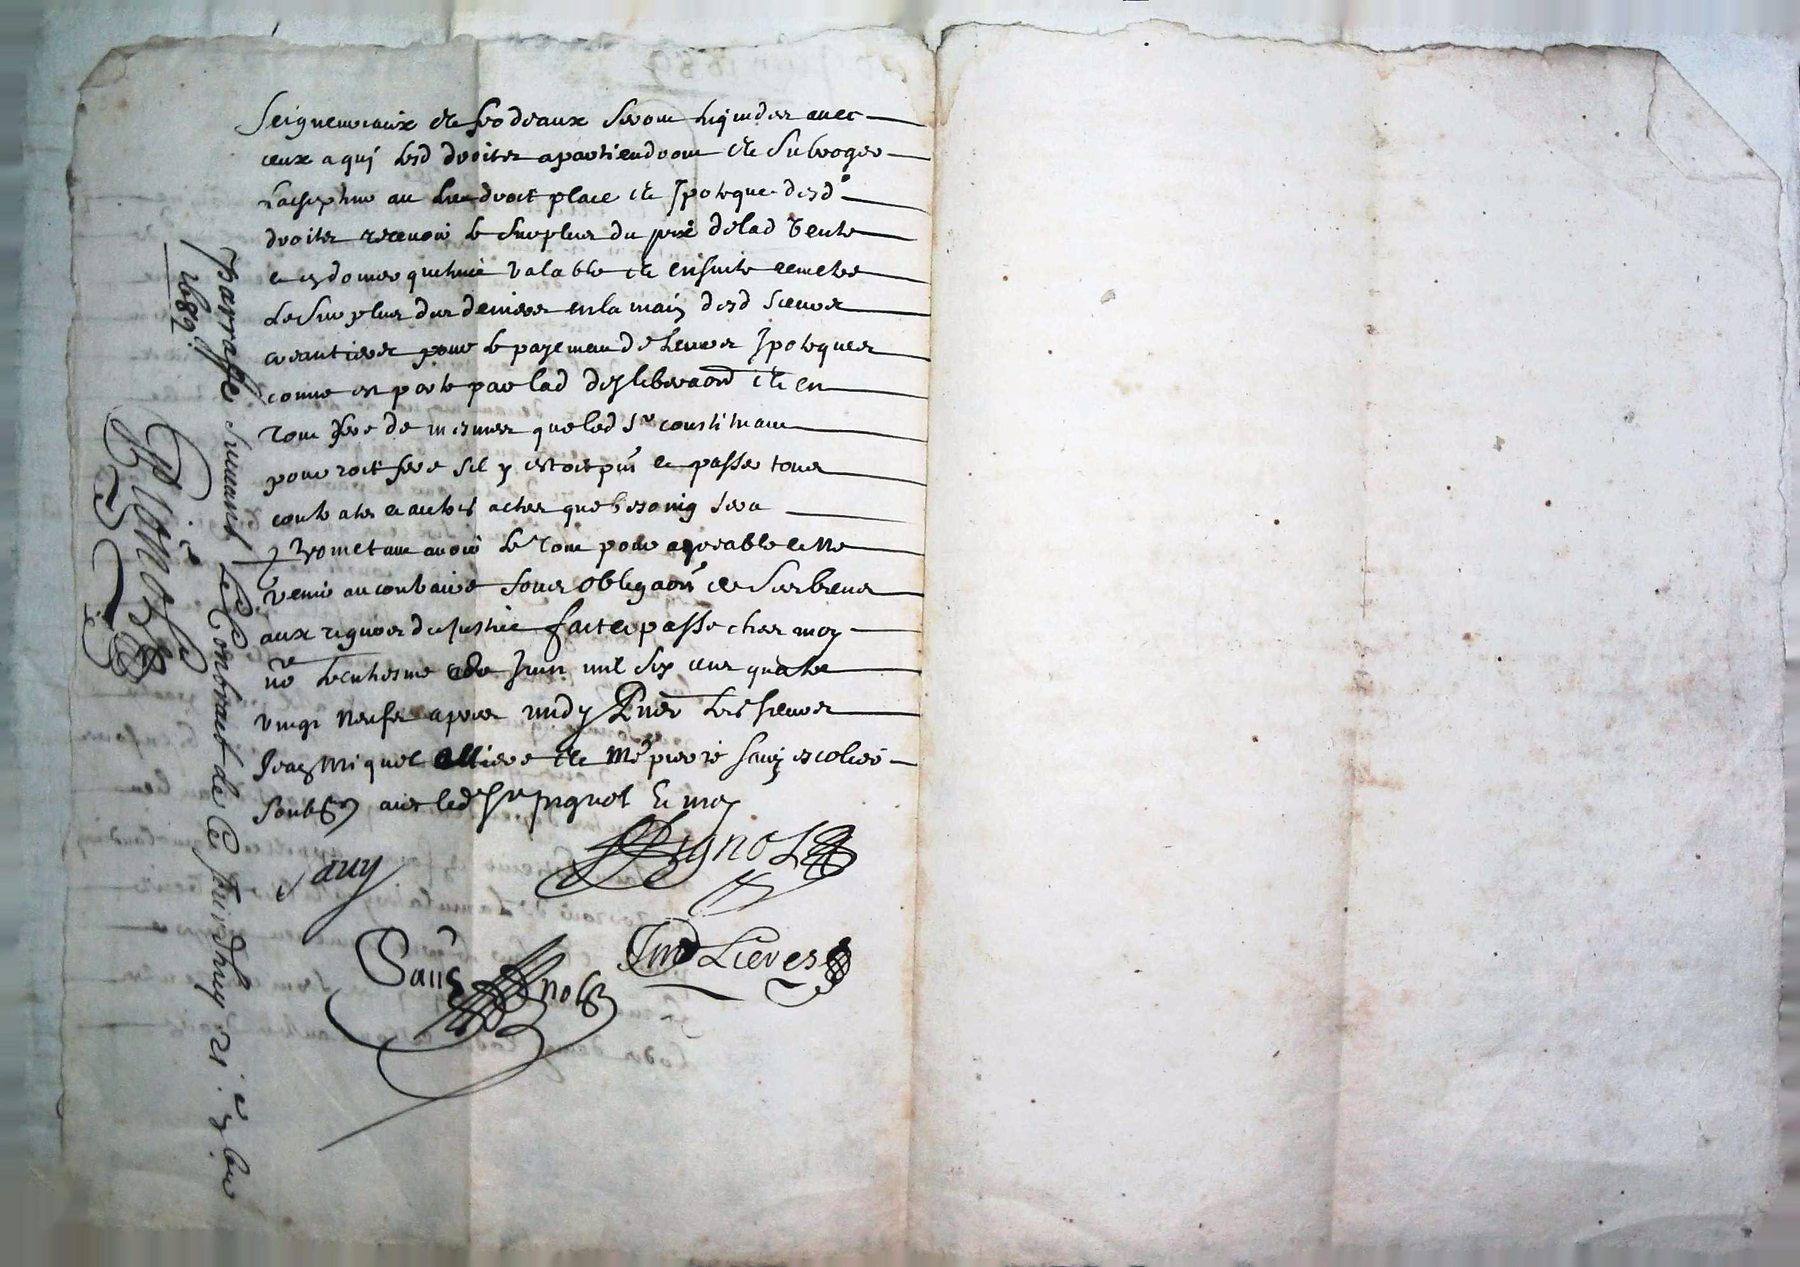 Seigneuriaux et feodeaux seront liquides avec
ceux a quj lesd droites apartiendront et subroger
au lieu droit place et Jpoteque desd
droites recevoir le surplus du prix de lad vente
en donner quitance valable et ensuite remetre
le surplus des deniers en la main desd sieurs
creantiers pour le payement de leurs Jpoteques
comme est porte par lad desliberaon et en
tout fere de mesmes que led sr constituant
pourroit fere sil y estoit pnt et passer tous
contrates et autres actes que besoing sera
prometant avoir le tout pour agreable et ne
venir au contraire soubs obligaon de ses biens
aux rigueurs de justice fait et passe ches moy
nre le Juin mil six cens quatre
vingt neufs apres midy Pnts les sieurs
Jean Miquel et Me pierre sauy escolier
soubsnes avec led sr pignol et moy
Pignol
sauy
Lieres
parraffe suivant le Contrault de Ce Jourdhuy 21. e 9bre
1689.
Pignol